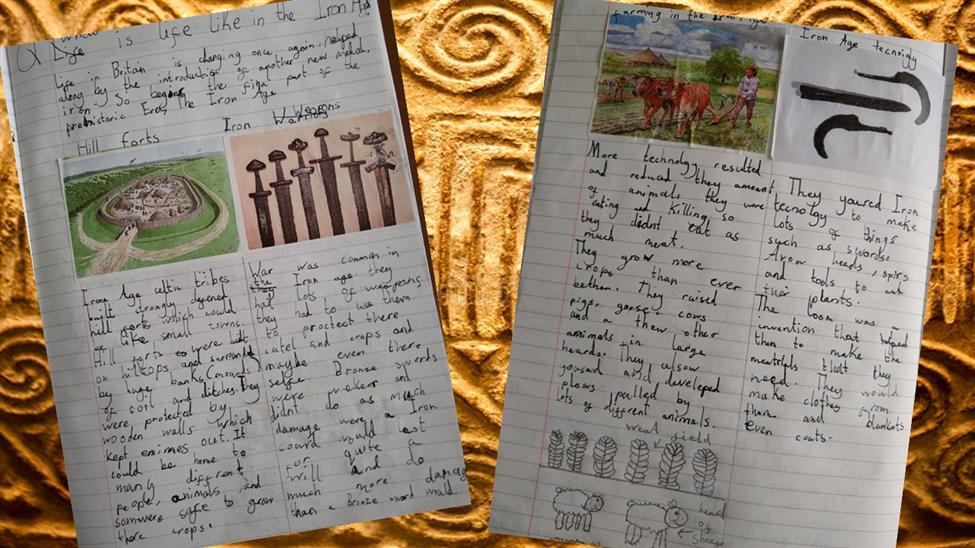 is life like in the Iron Age
Life
Life in Britain is changing once again, helped
along by the introduction of another new metal,
iron. So began the final part of the
prehistoric Era, The Iron Age
Hill forts
Iron Weapons
Iron Age celtic tribes
built strongly defened
hill forts which could
be like small towns.
Hill forts were built
on hilltops and surround
by huge banks (mounds)
of soil and ditches. They
were protected by
wooden walls which
kept enimes out. It
could be home to
many diffrant
people, animals and
somwere safe to grow
thare crops.
War was comman in
the Iron age. they
had lots of weapens
they had to use them
to proctect there
catel and crops and
maybe even there
selfe Bronze swords
were weker and
didnt do as much
damage were a Iron
sword would last
for quite a
will and do
much more damag
than a Bronze sword would.
farming in the Iron Age
Iron Age tecnoligy
More technology resulted
and reduced they amount
of animals they were
eating and killing so
they didnt eat as
much meat.
They grow more
crops than ever
bether. They raised
pigs, goose, cows
and a thew other
animals in large
heards. They ulsow
goused and develeped
plows pulled by
lots of different animals.
They youred Iron
tecnology to make
lots of things
such as swords.
Arow heads, spirs
and tools to cut
their plants.
The loom was a
invention that helped
them to make the
meatrials that they
need. They would
make clothes from
tham and blankets
even coats.
weat field
heard
of
sheep